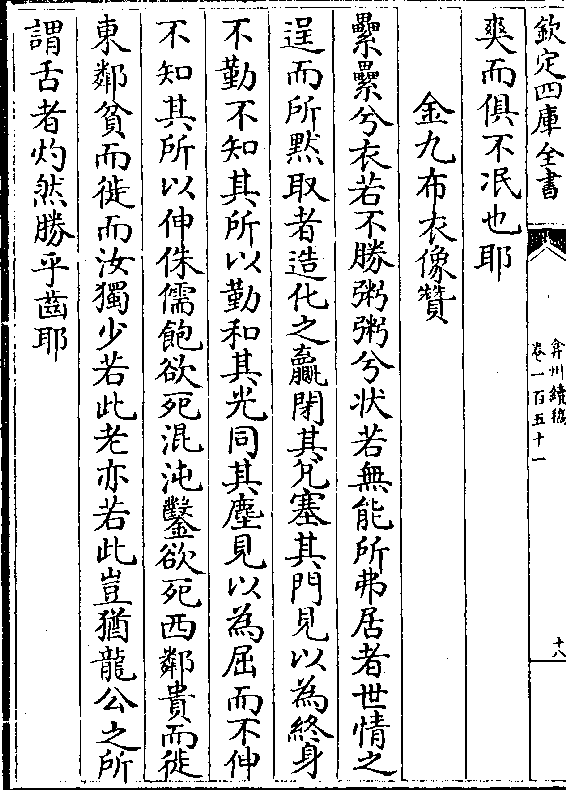 欽定四庫全書
弇州續稿
卷一百五十一
十八
爽而俱不泯也耶
金九布衣像贊
纍纍兮衣若不勝粥粥兮狀若無能所弗居者世情之
逞而所黙取者造化之贏閉其兊塞其門見以為終身
不勤不知其所以勤和其光同其塵見以為屈而不伸
不知其所以伸侏儒飽欲死混沌鑿欲死西鄰貴而徙
東鄰貧而徙而汝獨少若此老亦若此豈猶龍公之所
謂舌者灼然勝乎齒耶